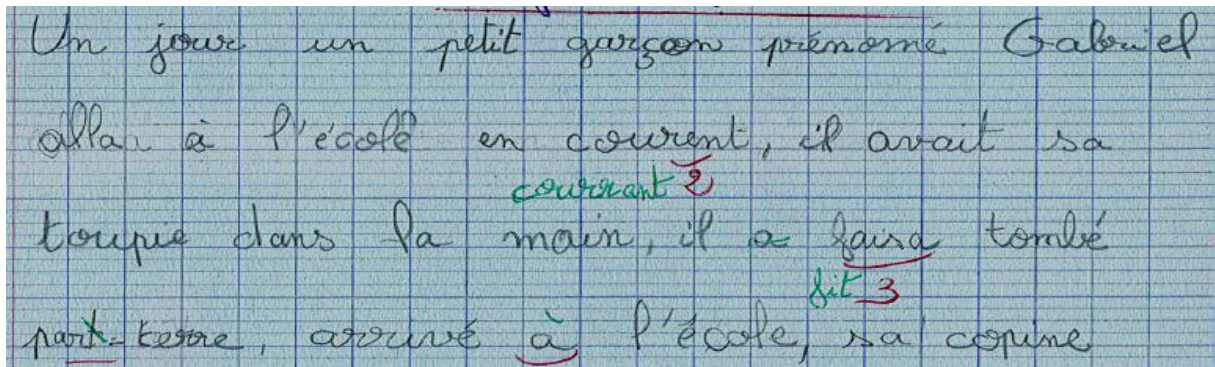 Un jour un petit garçon prénomé Gabriel
allai à l'école en courent, il avait sa
courrant 2
toupie dans la main, il a faisa tombé
fit 3
part-terre, arrivé à l'école, sa copine